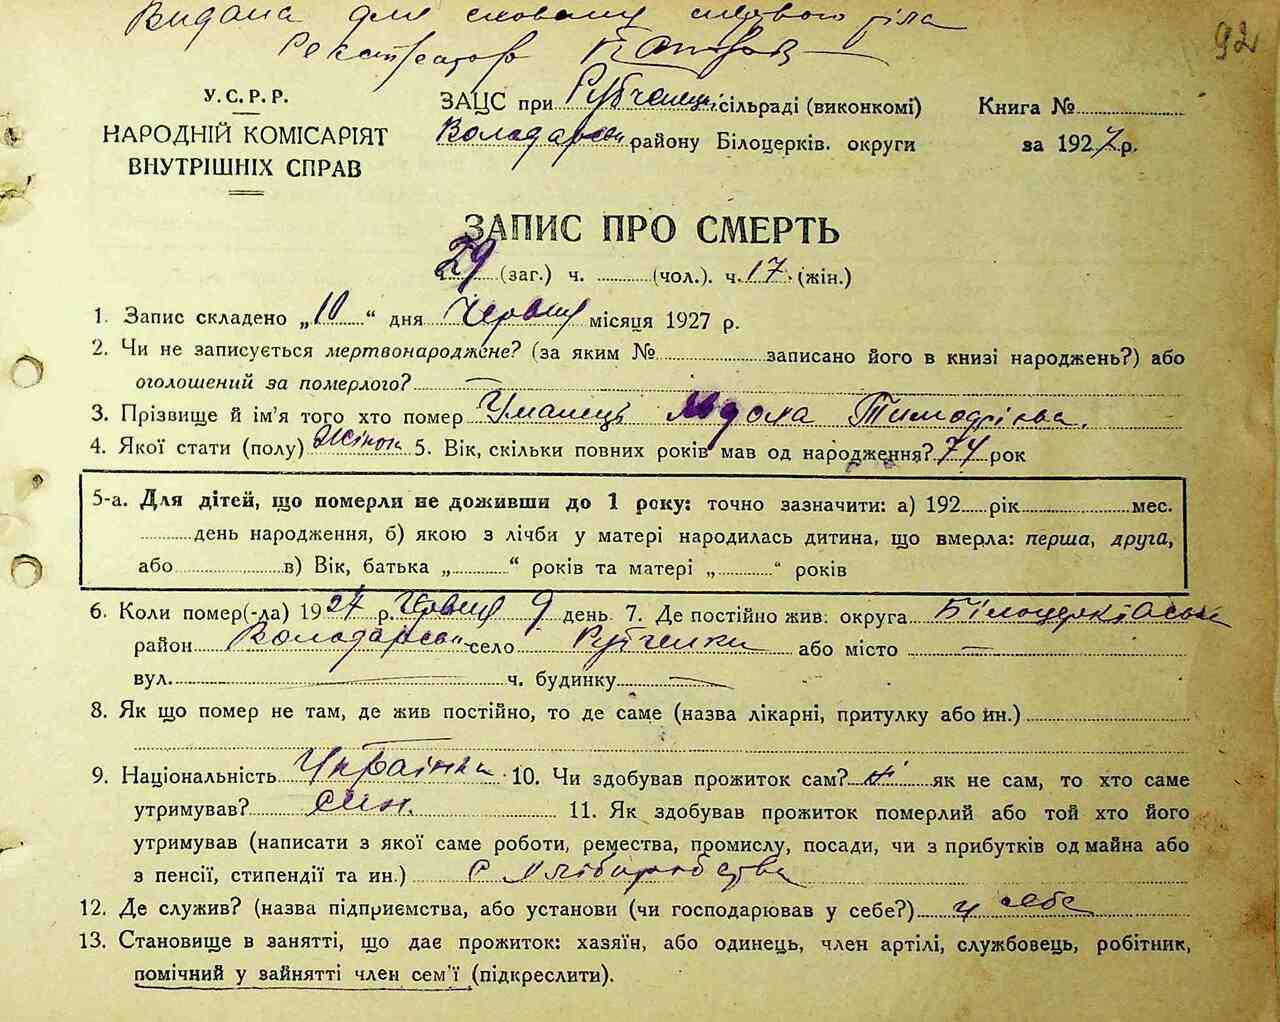 Видана для сховання мертвого тіла
Реєстратор
92
У.С.Р.Р.
НАРОДНІЙ КОМІСАРІЯТ
ВНУТРІШНІХ СПРАВ
ЗАЦС при Рубченецькі сільраді (виконкомі)
Володарськ району Білоцерків. округи
Книга №
за 1927 р.
ЗАПИС ПРО СМЕРТЬ
29 (заг.) ч. (чол.). ч. 17. (жін.)
1. Запис складено „10“ дня Червня місяця 1927 р.
2. Чи не записується мертвонароджене? (за яким № записано його в книзі народжень?) або
оголошений за померлого? —
3. Прізвище й ім'я того хто помер Уманець Тимофіїва.
4. Якої стати (полу) Жіноч 5. Вік, скільки повних років мав од народження? 74 рок
5-а. Для дітей, що померли не доживши до 1 року: точно зазначити: а) 192 рік мес.
день народження, б) якою з лічби у матері народилась дитина, що вмерла: перша, друга,
або в) Вік, батька „ “ років та матері „ “ років
6. Коли помер(-ла) 1927 р. Червня 9 день 7. Де постійно жив: округа Білоцерківська
район Володарськ село Рубченки або місто —
вул. — ч. будинку —
8. Як що помер не там, де жив постійно, то де саме (назва лікарні, притулку або ин.)
9. Національність Українка 10. Чи здобував прожиток сам? ні як не сам, то хто саме
утримував? син. 11. Як здобував прожиток померлий або той хто його
утримував (написати з якої саме роботи, ремества, промислу, посади, чи з прибутків од майна або
з пенсії, стипендії та ин.) с хліборобства
12. Де служив? (назва підприємства, або установи (чи господарював у себе?) у себе
13. Становище в занятті, що дає прожиток: хазяїн, або одинець, член артілі, службовець, робітник,
помічний у зайнятті член сем'ї (підкреслити).